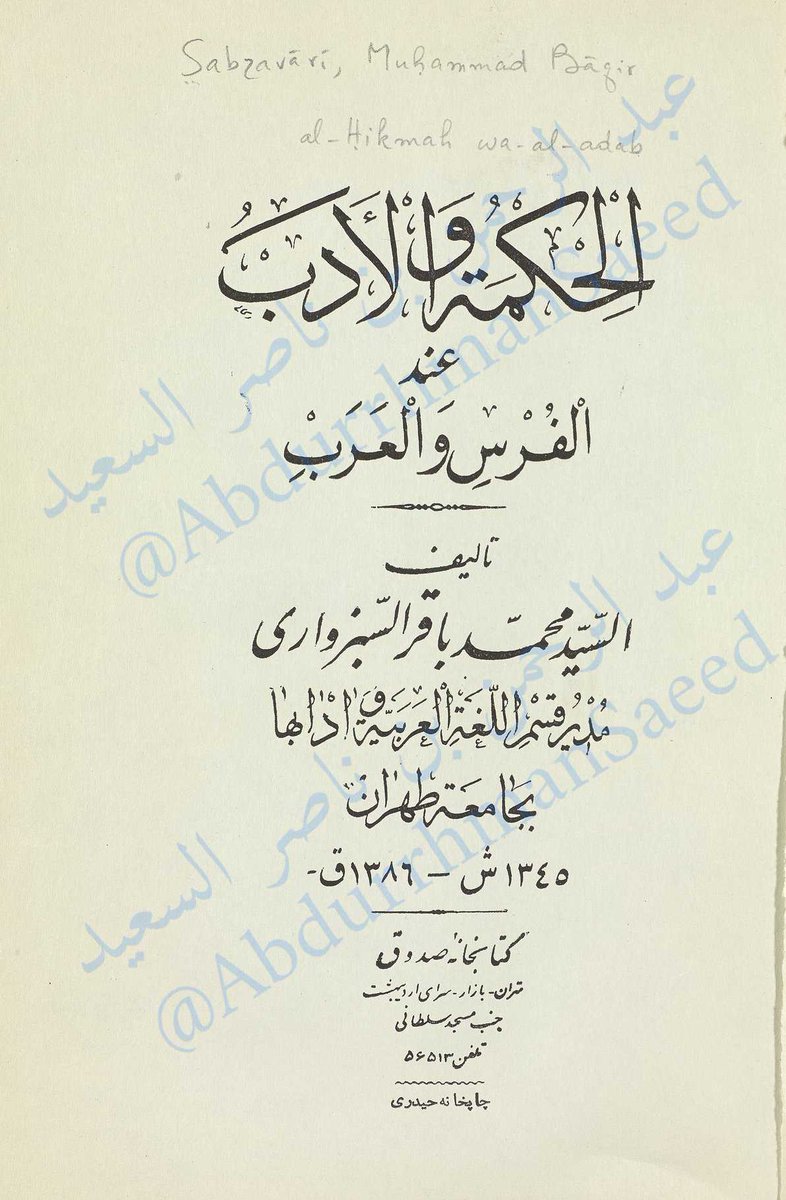 Sabzavārī, Muḥammad Bāqir
al-Ḥikmah wa-al-adab
الْحِكْمَة وَالْأَدَبُ
عند
الْفُرْسِ وَالْعَرَبْ
تالیف
السّیّد محمّد باقر السّبزواری
مُدْیرُ قِسْمِ اللّغَةِ الْعَرَبیَّةِ وَ اذابها
بجامعة طهران
١٣٤٥ش - ١٣٨٦ق-
کتابخانهٔ صدوق
تهران - بازار - سرای اردیبهشت
جنب مسجد سلطانی
تلفن ۵۶۵۱۳
چاپخانه حیدری
عبد الرحمن بن ناصر السعيد
@AbdurrhmanSaeed
عبد الرحمن بن ناصر السعيد
@AbdurrhmanSaeed